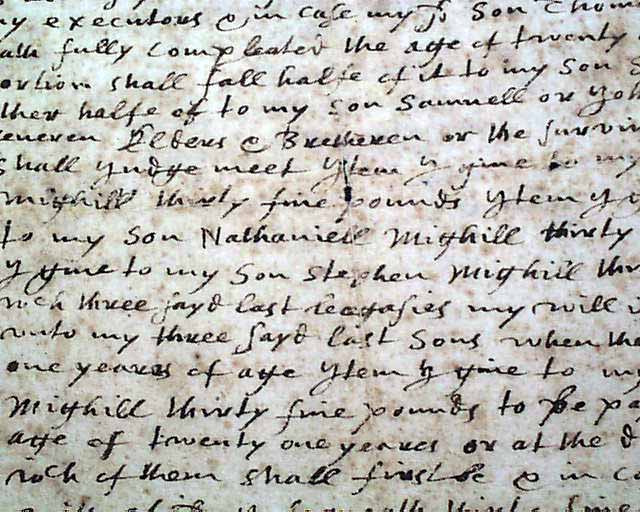 my executors & in case my sd Son Thom
ath fully compleated the age of twenty
ortion shall fall halfe of it to my son S
ther halfe of to my Son Samuell or Joh
everen Elders & Bretheren or the survi
shall Judge meet Ytem I giue to my
Mighill thirty fiue pounds Ytem I g
to my Son Nathaniell Mighill thirty
I giue to my Son Stephen Mighill thir
wch three sayd last leagasies my will
vnto my three sayd last Sons when the
one yeares of age Ytem I giue to my
Mighill thirty fiue pounds to be pa
age of twenty one yeares or at the d
wch of them shall first be & in ca